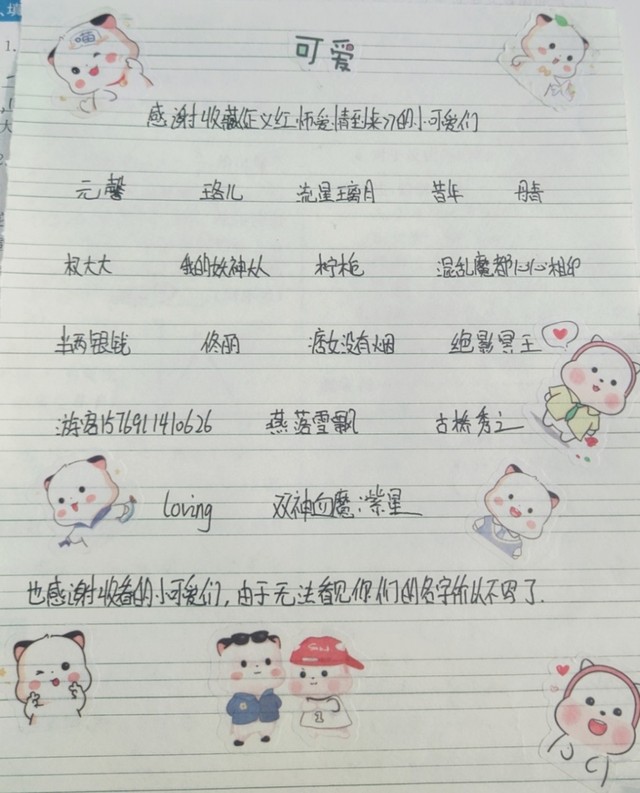 填
1.
喵
可爱
感谢收藏《正义红师爱情到来》的小可爱们
元馨 珞儿 流星璃月 昔年 丹奇
权大大 我的妖神大人 柠栀 混乱魔都心心相印
半两银钱 佟丽 痞女没有烟 绝影冥王
游客1576911410626 燕落雪飘 古桥秀之
loving 双神血魔:紫星
也感谢收看的小可爱们,由于无法看见你们的名字所以不写了.
G
1